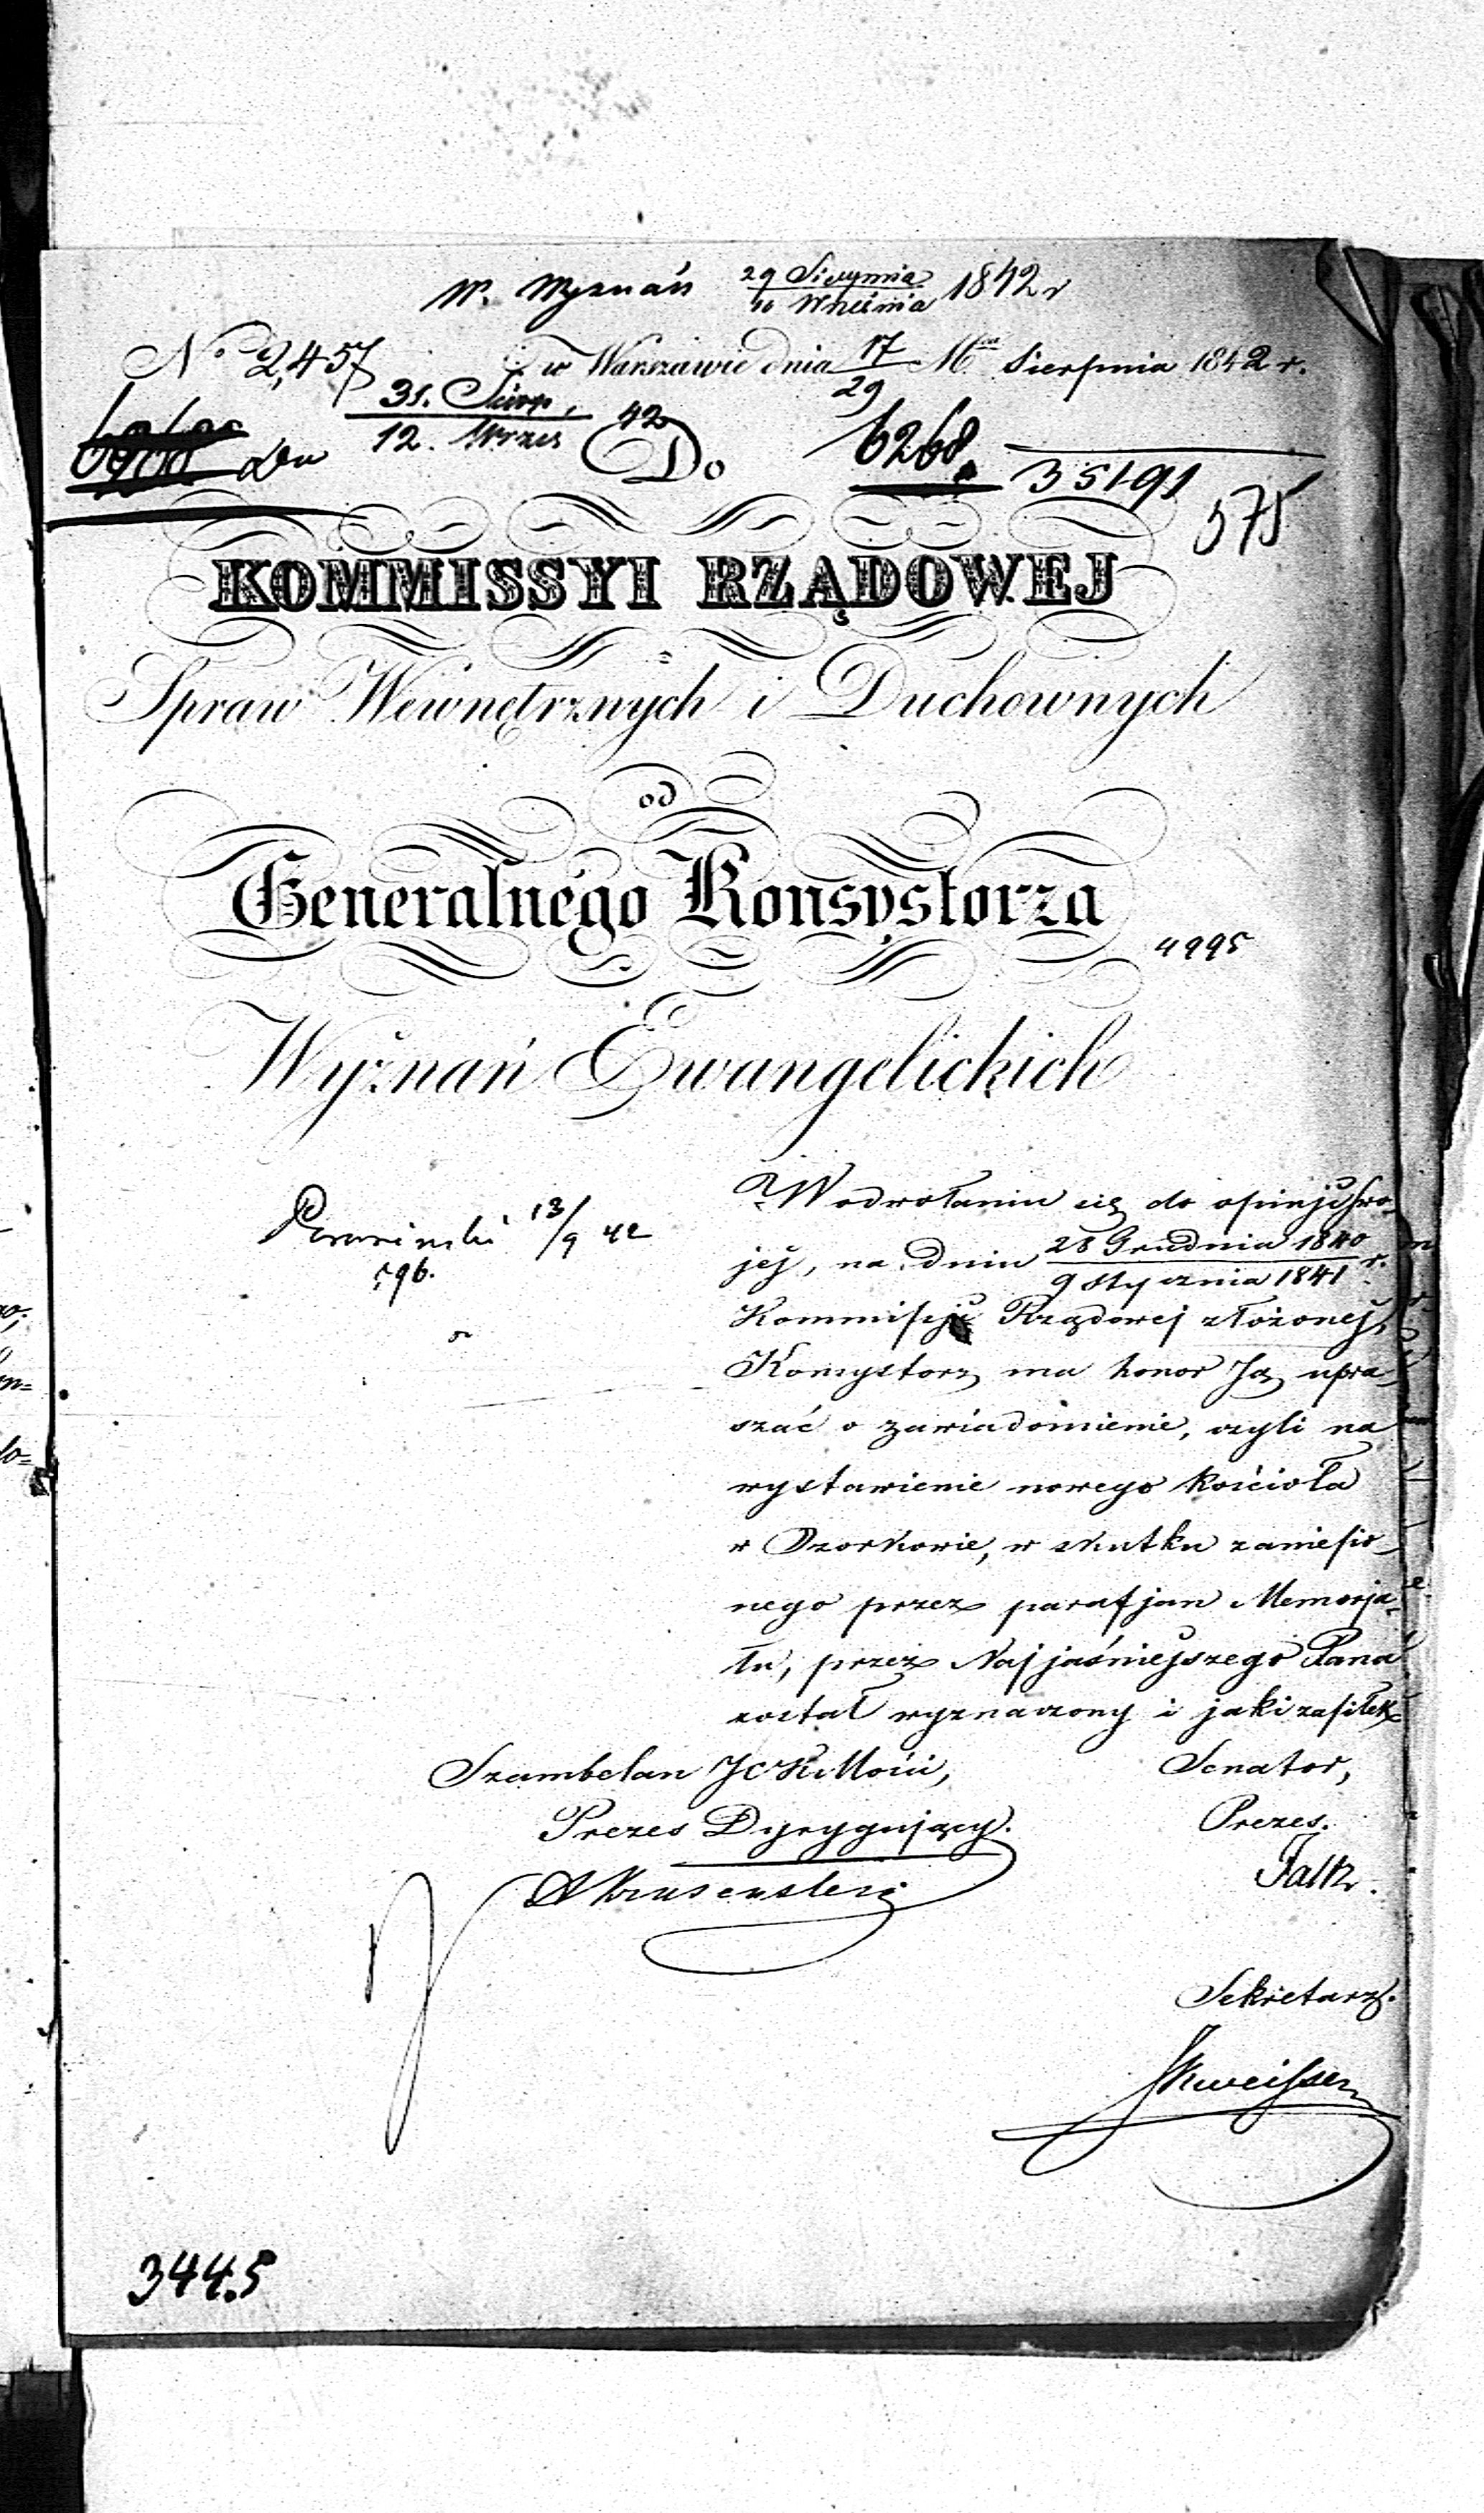 W. Wyznań 29 Sierpnia / 10 Września 1842 r
No 2,457 w Warszawie dnia 17/29 Mca Sierpnia 1842 r.
dn 31. Sierp. / 12. Wrzes 42
Do 6268. 35191
575
KOMMISSYI RZĄDOWEJ
Spraw Wewnętrznych i Duchownych
od
Generalnego Konsystorza
4995
Wyznań Ewangelickich
13/9 42
596.
W odwołaniu się do opinji swo-
jej, na dniu 28 Grudnia 1840 / 9 Stycznia 1841 r.
Kommissji Rządowej złożonej,
Konsystorz ma honor Ją upra-
szać o zawiadomienie, czyli na
wystawienie nowego kościoła
w Ozorkowie, w skutku zaniesio-
nego przez parafjan Memorja-
łu, przez Najjaśniejszego Pana
został wyznaczony i jaki zasiłek
Szambelan JCKMości, Senator,
Prezes Dyrygujący. Prezes.
Faltz.
Sekretarz.
3445